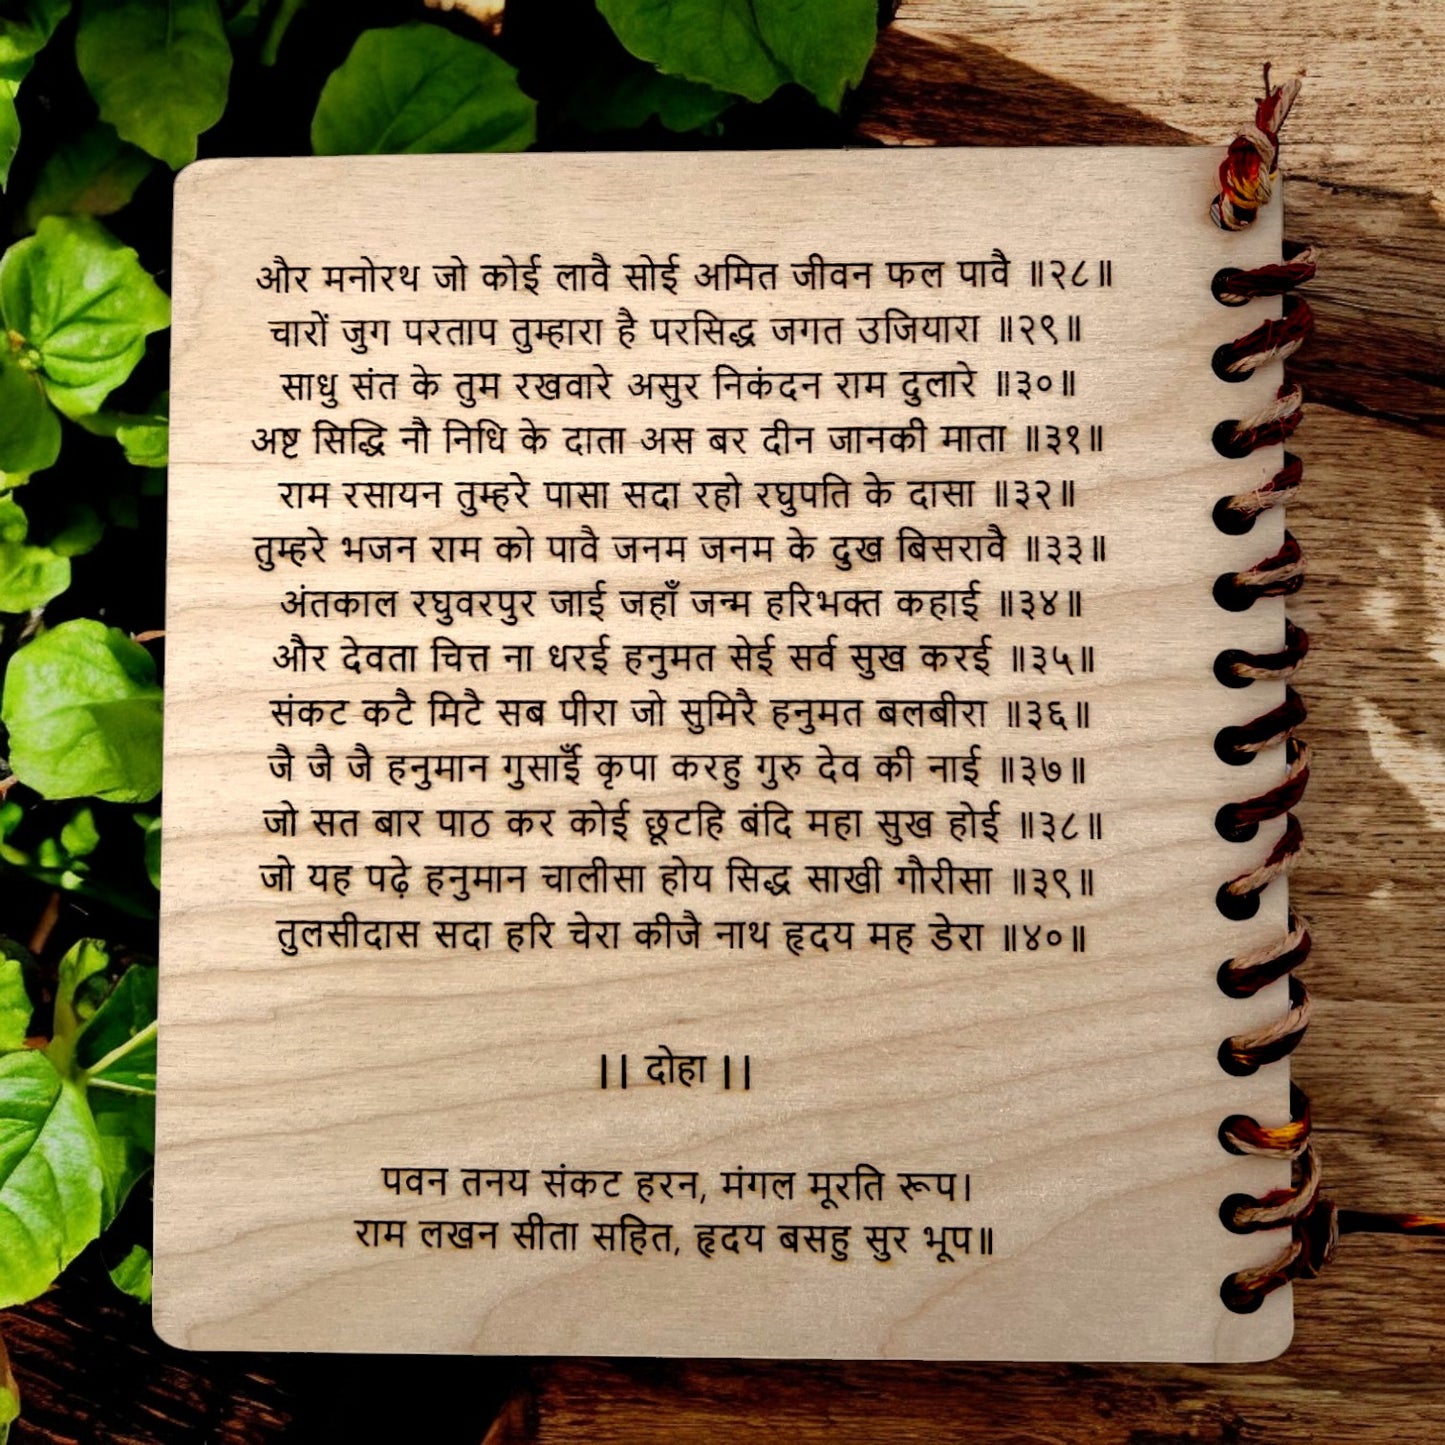 और मनोरथ जो कोई लावै सोई अमित जीवन फल पावै ॥२८॥
चारों जुग परताप तुम्हारा है परसिद्ध जगत उजियारा ॥२९॥
साधु संत के तुम रखवारे असुर निकंदन राम दुलारे ॥३०॥
अष्ट सिद्धि नौ निधि के दाता अस बर दीन जानकी माता ॥३१॥
राम रसायन तुम्हरे पासा सदा रहो रघुपति के दासा ॥३२॥
तुम्हरे भजन राम को पावै जनम जनम के दुख बिसरावै ॥३३॥
अंतकाल रघुवरपुर जाई जहाँ जन्म हरिभक्त कहाई ॥३४॥
और देवता चित्त ना धरई हनुमत सेई सर्व सुख करई ॥३५॥
संकट कटै मिटै सब पीरा जो सुमिरै हनुमत बलबीरा ॥३६॥
जै जै जै हनुमान गुसाईँ कृपा करहु गुरु देव की नाई ॥३७॥
जो सत बार पाठ कर कोई छूटहि बंदि महा सुख होई ॥३८॥
जो यह पढ़े हनुमान चालीसा होय सिद्ध साखी गौरीसा ॥३९॥
तुलसीदास सदा हरि चेरा कीजै नाथ हृदय मह डेरा ॥४०॥
|| दोहा ||
पवन तनय संकट हरन, मंगल मूरति रूप।
राम लखन सीता सहित, हृदय बसहु सुर भूप॥